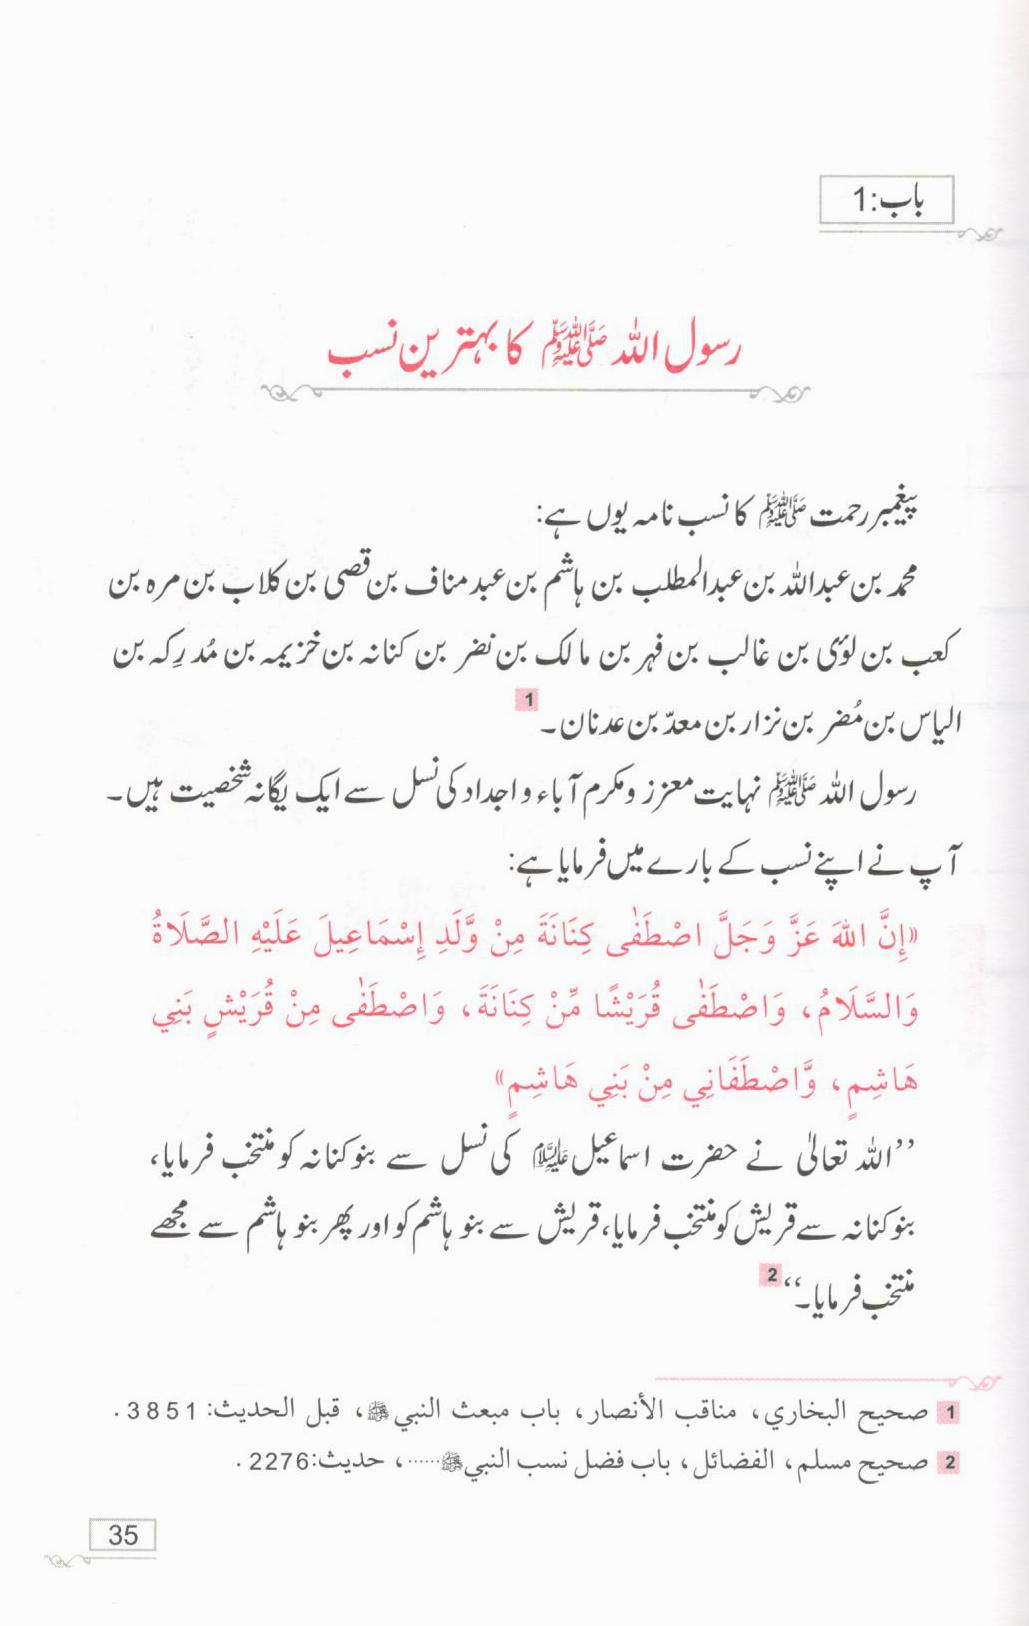 باب:1
رسول اللہ ﷺ کا بہترین نسب
پیغمبر رحمت ﷺ کا نسب نامہ یوں ہے:
محمد بن عبداللہ بن عبدالمطلب بن ہاشم بن عبد مناف بن قصی بن کلاب بن مرہ بن
کعب بن لؤی بن غالب بن فہر بن مالک بن نضر بن کنانہ بن خزیمہ بن مُدرِکہ بن
الیاس بن مُضر بن نزار بن معدّ بن عدنان۔ 1
رسول اللہ ﷺ نہایت معزز و مکرم آباء و اجداد کی نسل سے ایک یگانہ شخصیت ہیں۔
آپ نے اپنے نسب کے بارے میں فرمایا ہے:
«إِنَّ اللهَ عَزَّ وَجَلَّ اصْطَفٰى كِنَانَةَ مِنْ وَّلَدِ إِسْمَاعِيلَ عَلَيْهِ الصَّلَاةُ
وَالسَّلَامُ، وَاصْطَفٰى قُرَيْشًا مِّنْ كِنَانَةَ، وَاصْطَفٰى مِنْ قُرَيْشٍ بَنِي
هَاشِمٍ، وَّاصْطَفَانِي مِنْ بَنِي هَاشِمٍ»
’’اللہ تعالیٰ نے حضرت اسماعیل علیہ السلام کی نسل سے بنو کنانہ کو منتخب فرمایا،
بنو کنانہ سے قریش کو منتخب فرمایا، قریش سے بنو ہاشم کو اور پھر بنو ہاشم سے مجھے
منتخب فرمایا۔‘‘ 2
1 صحيح البخاري، مناقب الأنصار، باب مبعث النبي ﷺ، قبل الحديث: 3851.
2 صحيح مسلم، الفضائل، باب فضل نسب النبي ﷺ......، حديث:2276.
35